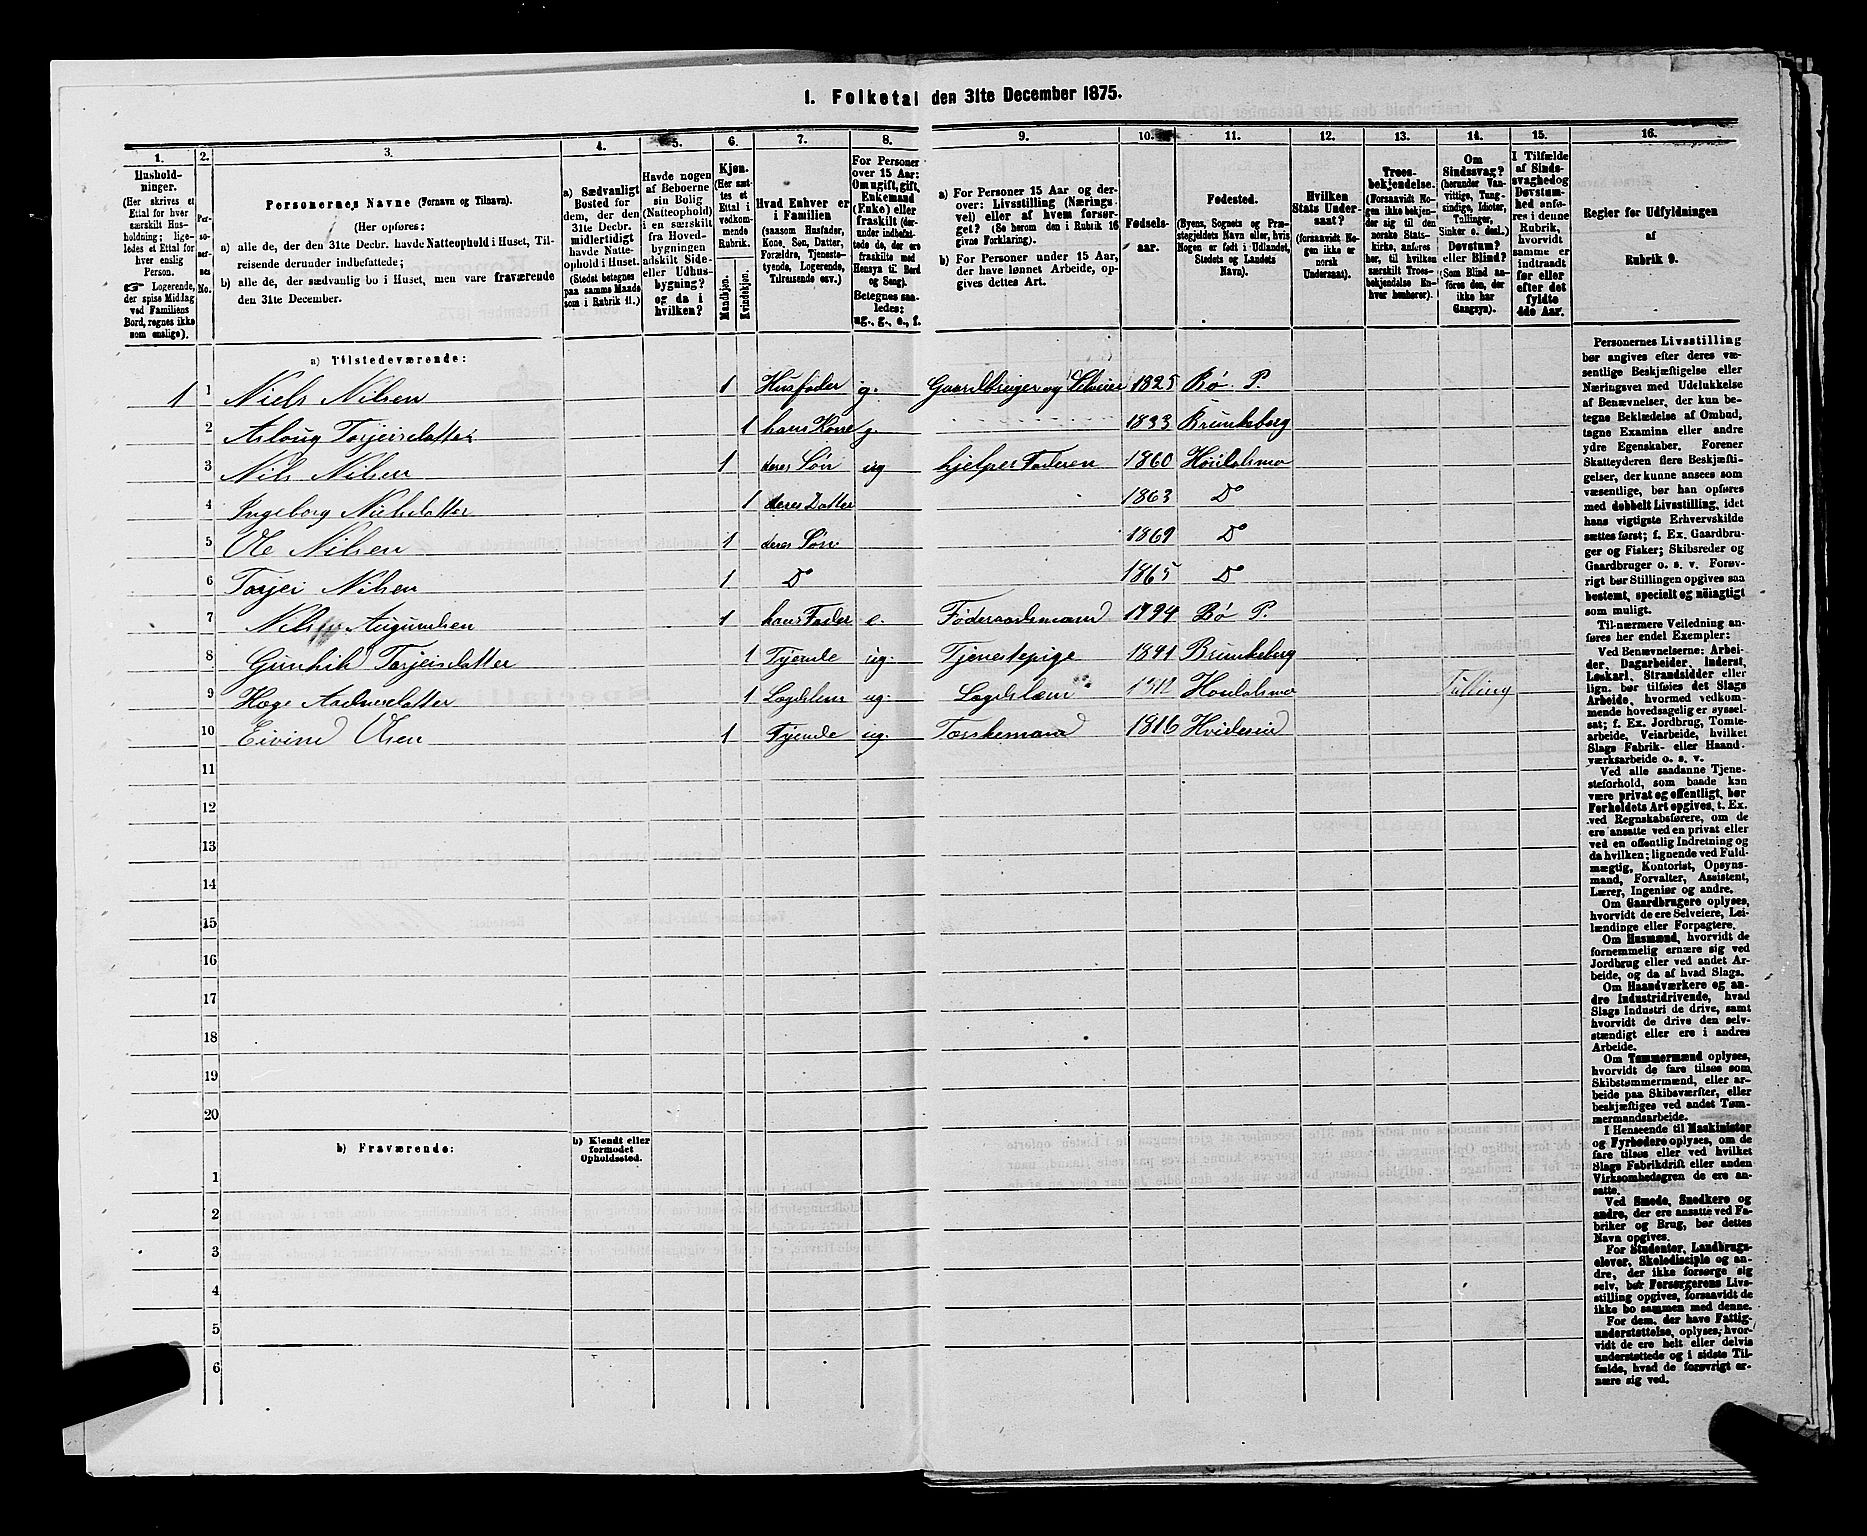 1. Folketal den 31te December 1875.
1. 2. 3. 4. 5. 6. 7. 8. 9. 10. 11. 12. 13. 14. 15. 16.
Hushold-
ninger.
(Her skrives et
Ettal for hver
særskilt Hus-
holdning; lige-
ledes et Ettal for
hver enslig
Person.
☛ Logerende,
der spise Middag
ved Familiens
Bord, regnes ikke
som enslige).
Personernes Navne (Fornavn og Tilnavn).
(Her opføres:
a) alle de, der den 31te Decbr. havde Natteophold i Huset, Til-
reisende derunder indbefattede;
b) alle de, der sædvanlig bo i Huset, men vare fraværende
den 31te December.
a) Sædvanligt
Bosted for
dem, der den
31te Decbr.
midlertidigt
havde Natte-
ophold i Huset.
(Stedet betegnes
paa samme Maade
som i Rubrik 11.)
Havde nogen
af Beboerne
sin Bolig
(Natteophold)
i en særskilt
fra Hoved-
bygningen
adskilt Side-
eller Udhus-
bygning?
og da i
hvilken?
Kjøn.
(Her sæt-
tes et
Ettal i
vedkom-
mende
Rubrik.
Mandkjøn.
Kvindekjøn.
Hvad Enhver er
i Familien
(saasom Husfader,
Kone, Søn, Datter,
Forældre, Tjeneste-
tyende, Logerende,
Tilreisende osv.)
For Personer
over 15 Aar:
Om ugift, gift,
Enkemand
(Enke) eller
fraskilt (der-
under indbefat-
tede de, der ere
fraskilte med
Hensyn til Bord
og Seng).
Betegnes saa-
ledes:
ug., g., e., f.
a) For Personer 15 Aar og der-
over: Livsstilling (Nærings-
vei) eller af hvem forsør-
get? (Se herom den i Rubrik 16
givne Forklaring).
b) For Personer under 15 Aar,
der have lønnet Arbeide, op-
gives dettes Art.
Fødsels-
aar.
Fødested.
(Byens, Sognets og Præ-
stegjeldets Navn eller, hvis
Nogen er født i Udlandet,
Stedets og Landets
Navn).
Hvilken
Stats Under-
saat?
(forsaavidt No-
gen ikke er
norsk
Undersaat).
Troes-
bekjendelse.
(Forsaavidt No-
gen ikke bekjen-
der sig til den
norske Stats-
kirke, anføres
her, til hvilken
særskilt Troes-
bekjendelse En-
hver henhører).
Om
Sindssvag?
(herunder Van-
vittige, Tung-
sindige, Idioter,
Tullinger,
Sinker o. desl.)
Døvstum?
eller Blind?
(Som Blind an-
føres den, der
ikke har
Gangsyn).
I Tilfælde
af Sinds-
svaghed og
Døvstum-
hed anfø-
res i denne
Rubrik,
hvorvidt
samme er
indtraadt
før eller
efter det
fyldte
4de Aar.
Regler for Udfyldningen
af
Rubrik 9.
a) Tilstedeværende:
1 1 Niels Nilsen 1 Husfader g. Gaardbruger og Selveier 1825 Bø P.
2 Asloug Torjeisdatter 1 hans Kone g. 1833 Brunkeberg
3 Nils Nilsen 1 deres Søn ug hjelper Faderen 1860 Høidalsmo
4 Ingeborg Nielsdatter 1 deres Datter 1863 Do
5 Ole Nilsen 1 deres Søn 1869 Do
6 Torjei Nilsen 1 Do 1865 Do
7 Nils Augundsen 1 hans Fader e. Føderaadsmand 1794 Bø P.
8 Gunhild Torjeisdatter 1 Tyende ug. Tjenestepige 1841 Brunkeberg
9 Hæge Aadnesdatter 1 Lægdslem ug. Lægdslem Høidalsmo Tulling
10 Eivind Olsen 1 Tyende ug. Tærskemand 1816 Hvideseid
11
12
13
14
15
16
17
18
19
20
b) Fraværende:
b) Kjendt eller
formodet
Opholdssted.
1
2
3
4
5
6
Personernes Livsstilling
bør angives efter deres væ-
sentlige Beskjæftigelse eller
Næringsvei med Udelukkelse
af Benævnelser, der kun be-
tegne Beklædelse af Ombud,
tagne Examina eller andre
ydre Egenskaber. Forener
Skatteyderen flere Beskjæfti-
gelser, der kunne ansees som
væsentlige, bør han opføres
med dobbelt Livsstilling, idet
hans vigtigste Erhvervskilde
sættes først; f. Ex. Gaardbru-
ger og Fisker; Skibsreder og
Gaardbruger o. s. v. Forøv-
rigt bør Stillingen opgives saa
bestemt, specielt og nøiagtigt
som muligt.
Til nærmere Veiledning an-
føres her endel Exempler:
Ved Benævnelserne: Arbei-
der, Dagarbeider, Inderst,
Løskarl, Strandsidder eller
lign. bør tilføies det Slags
Arbeide, hvormed vedkom-
mende hovedsagelig er syssel-
sat; f. Ex. Jordbrug, Tomte-
arbeide, Veiarbeide, hvilket
Slags Fabrik- eller Haand-
værksarbeide o. s. v.
Ved alle saadanne Tjene-
steforhold, som baade kan
være privat og offentligt, bør
Forholdets Art opgives, t. Ex.
ved Regnskabsførere, om de
ere ansatte ved en privat eller
ved en offentlig Indretning og
da hvilken; lignende ved Fuld-
mægtig, Kontorist, Opsyns-
mand, Forvalter, Assistent,
Lærer, Ingeniør og andre.
Om Gaardbrugere oplyses,
hvorvidt de ere Selveiere, Lei-
lændinge eller Forpagtere.
Om Husmænd, hvorvidt de
fornemmelig ernære sig ved
Jordbrug eller ved andet Ar-
beide, og da af hvad Slags.
Om Haandværkere og an-
dre Industridrivende, hvad
Slags Industri de drive, samt
hvorvidt de drive den selv-
stændigt eller ere i andres
Arbeide.
Om Tømmermænd oplyses,
hvorvidt de fare tilsøs som
Skibstømmermænd, eller ar-
beide paa Skibsværfter, eller
beskjæftiges ved andet Tøm-
mermandsarbeide.
I Henseende til Maskinister
og Fyrbødere oplyses, om de
fare tilsøs eller ved hvilket
Slags Fabrikdrift eller anden
Virksomhedsgren de ere an-
satte.
Ved Smede, Snedkere og
andre, der ere ansatte ved Fa-
briker og Brug, bør dettes
Navn opgives.
For Studenter, Landbrugs-
elever, Skoledisciple og an-
dre, der ikke forsørge sig
selv, bør Forsørgerens Livs-
stilling opgives, forsaavidt de
ikke bo sammen med denne.
For dem, der have Fattig-
understøttelse, oplyses, hvor-
vidt de ere helt eller delvis
understøttede og i sidste Til-
fælde, hvad de forøvrigt er-
nære sig ved.